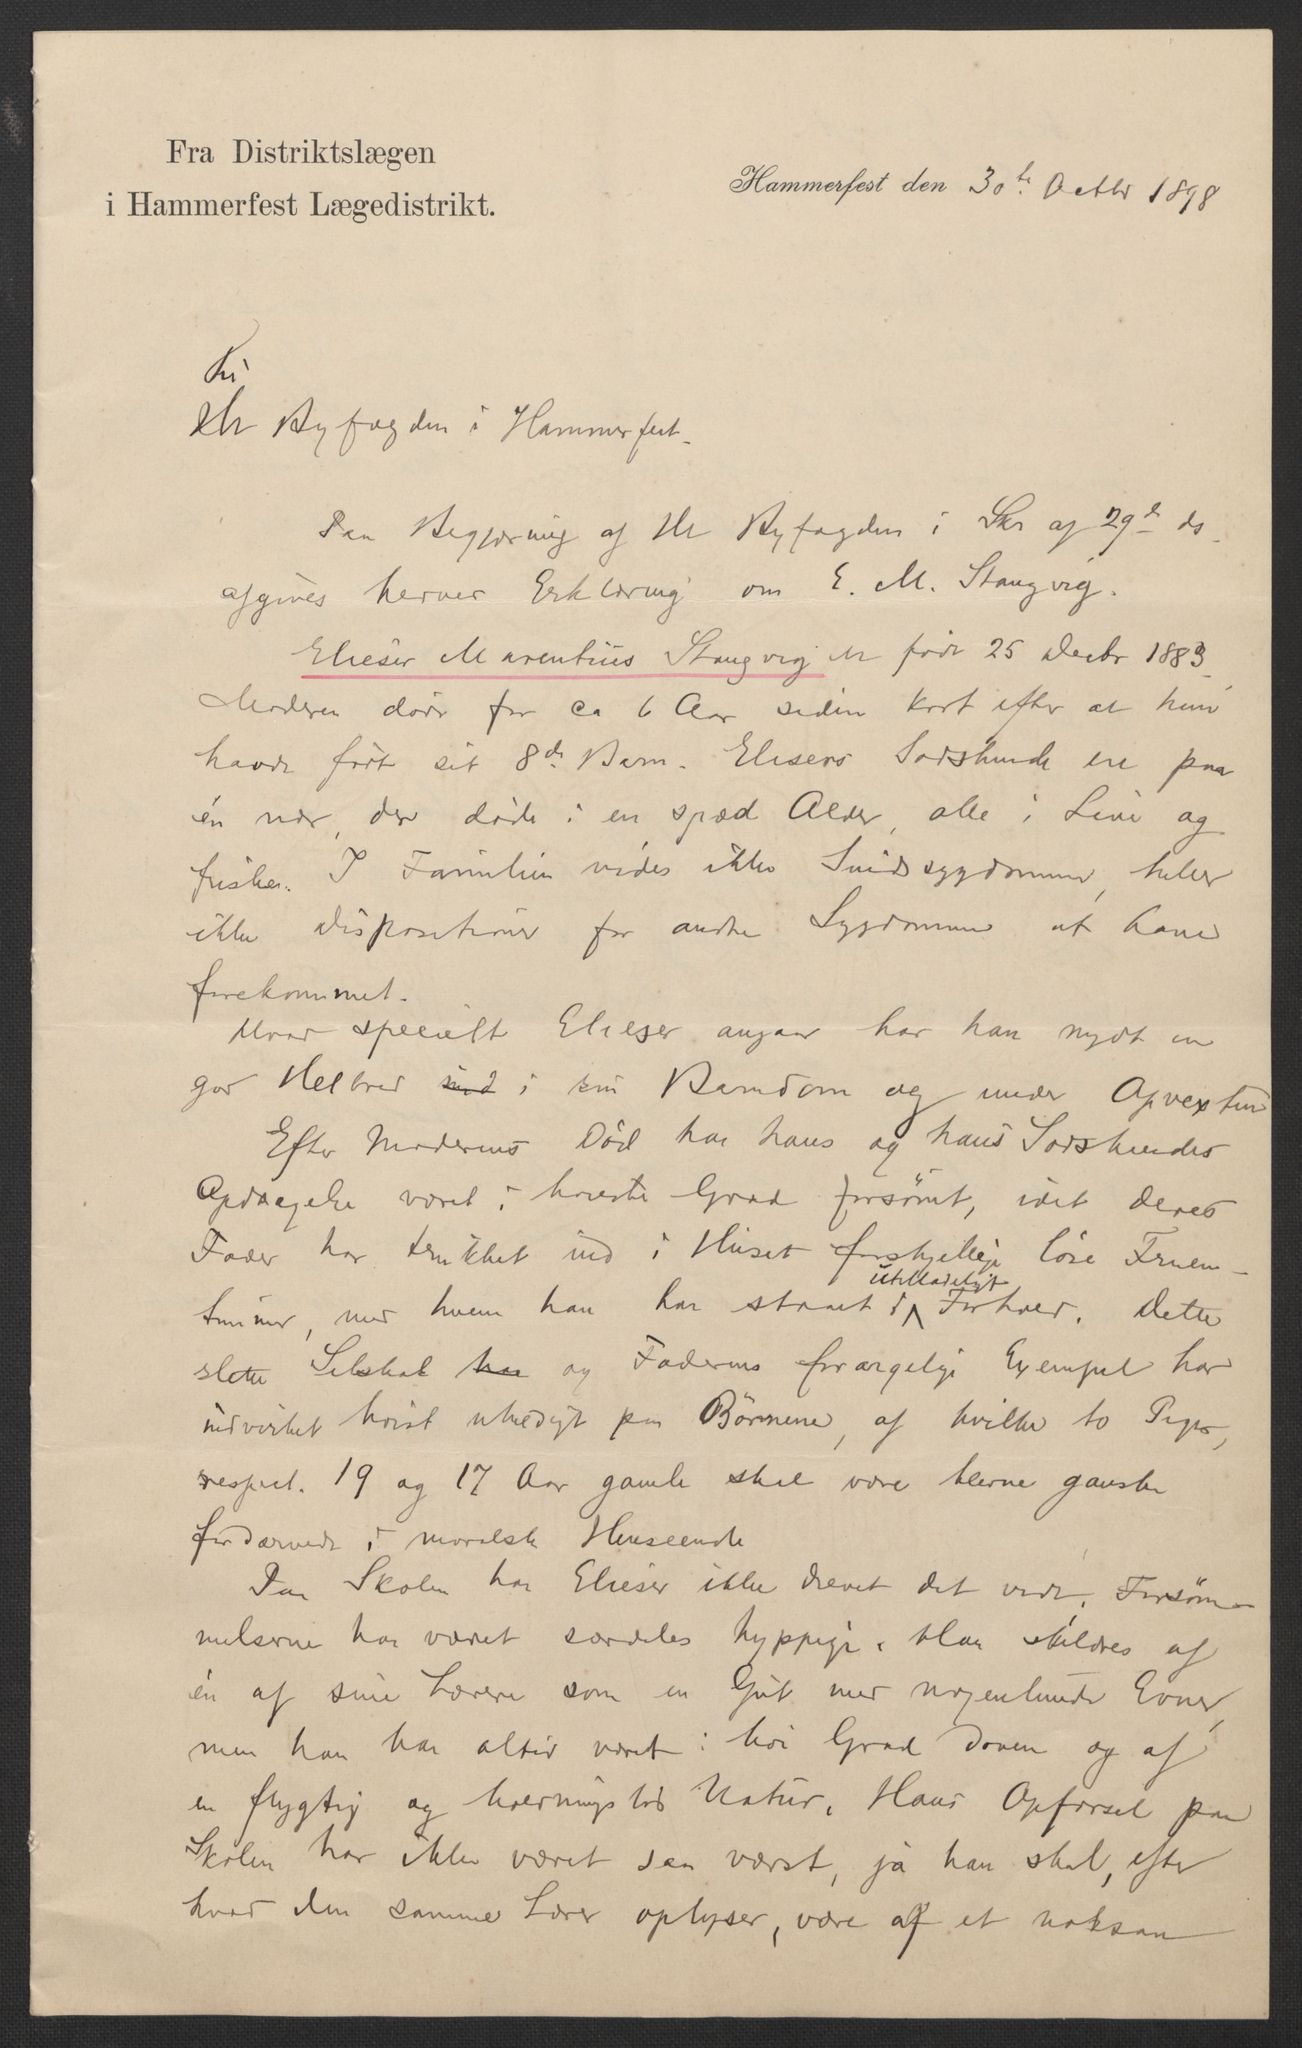 Fra Distriktslægen
i Hammerfest Lægedistrikt.
Hammerfest den 30te Octbr 1898
Til
Hr Byfogden i Hammerfest.
Paa Begjæring af Hr Byfogden i Skr af 29de ds
afgives herved Erklæring om E. M. Stangvig.
Elieser Marentius Stangvig er født 25 Decbr 1883
Moderen døde for ca 6 Aar siden kort efter at hun
havde født sit 8de Barn. Eliesers Sødskende ere paa
én nær, der døde i en spæd Alder, alle i Live og
friske. I Familien vides ikke Sindssygdomme, heller
ikke Dispositioner for andre Sygdomme at have
forekommet.
Hvad specielt Elieser angaar har han nydt en
god Helbred i sin Barndom og under Opvexten
Efter Moderens Død har hans og hans Sødskendes
Opdragelse været i høieste Grad forsømt, idet deres
Fader har trukket ind i Huset forskjellige løse Fruen-
timmer, med hvem han har staaet i utilladeligt Forhold. Dette
slette Selskab og Faderens forargelige Exempel har
indvirket høist uheldigt paa Børnene, af hvilke to Piger,
respect. 19 og 17 Aar gamle skal være blevne ganske
fordærvede i moralsk Henseende
Paa Skolen har Elieser ikke drevet det vidt. Forsøm-
melserne har været særdeles hyppige. Han skildres af
én af sine Lærere som en Gut med nogenlunde Evner,
men han har altid været i høi Grad doven og af
en flygtig og holdningsløs Natur. Hans Opførsel paa
Skolen har ikke været saa værst, ja han skal, efter
hvad den samme Lærer oplyser, være af et noksaa